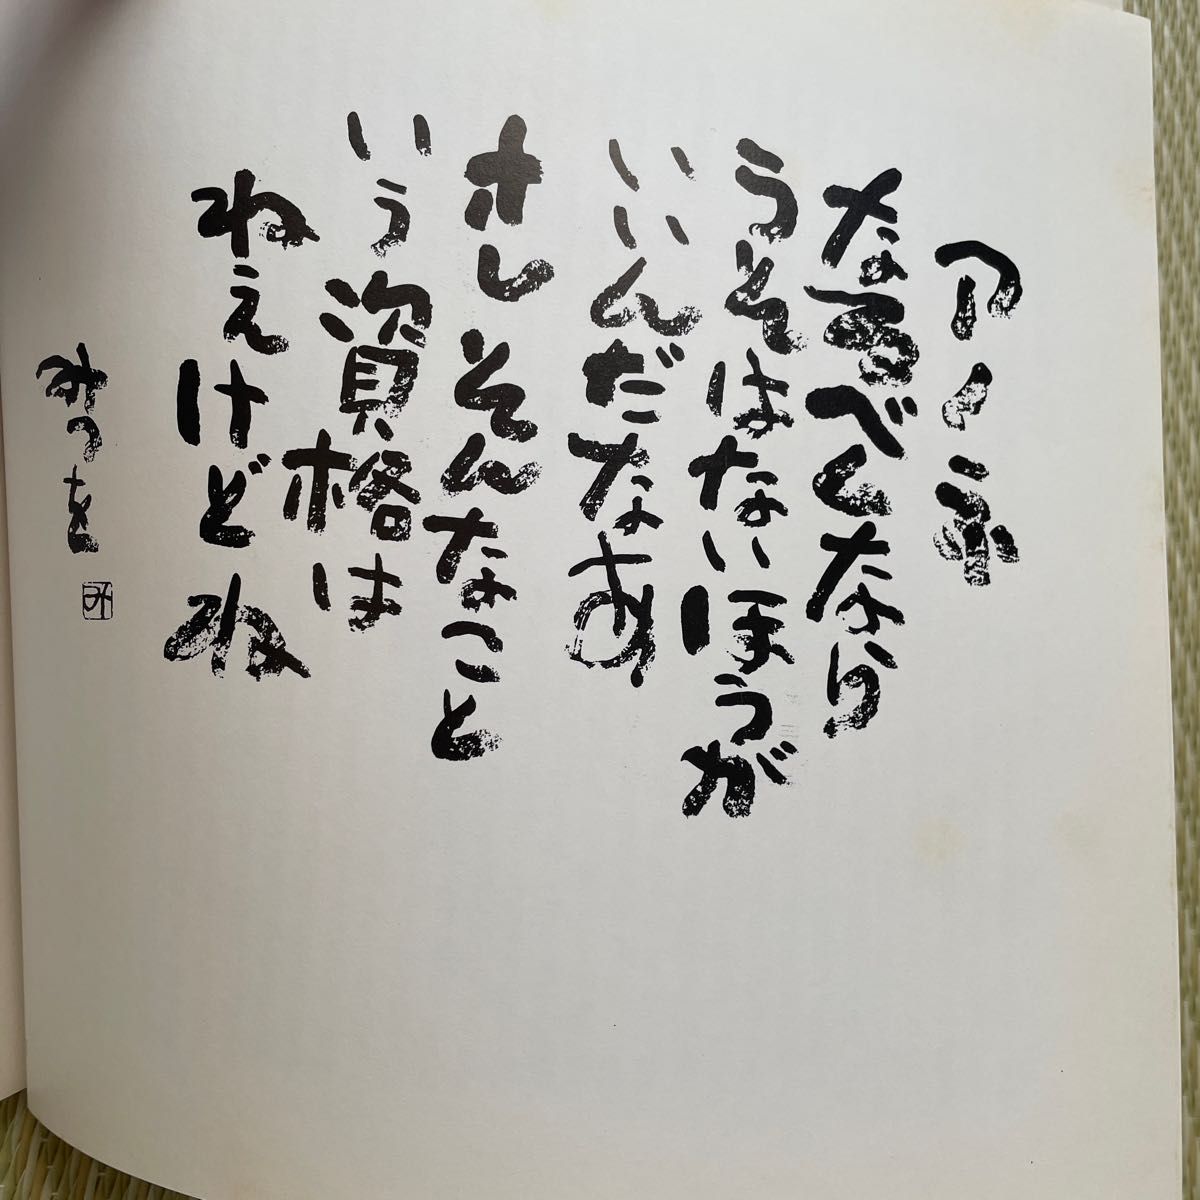 アノネ
なるべくなら
うそはないほうが
いいんだなあ
オレそんなこと
いう資格は
ねえけどね
みつを
み